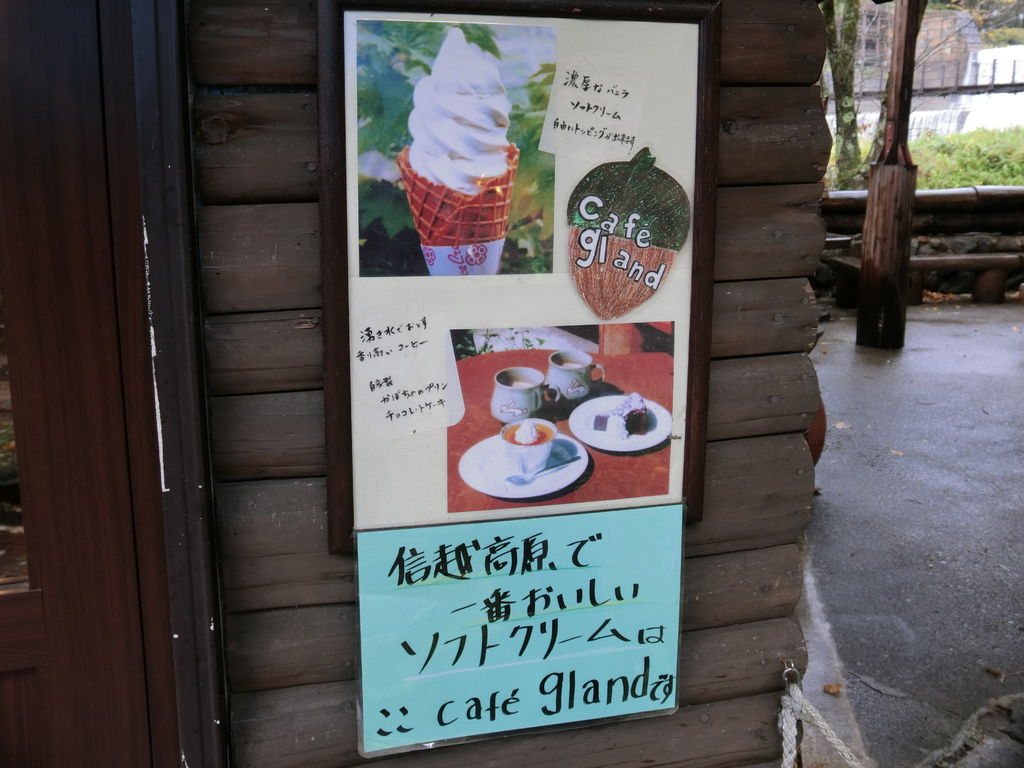 濃厚なバニラ
ソフトクリーム
自由にトッピングが出来ます
cafe
gland
湧き水でおとす
香り高いコーヒー
自家製
かぼちゃのプリン
チョコレートケーキ
信越高原で
一番おいしい
ソフトクリームは
ここ café glandです